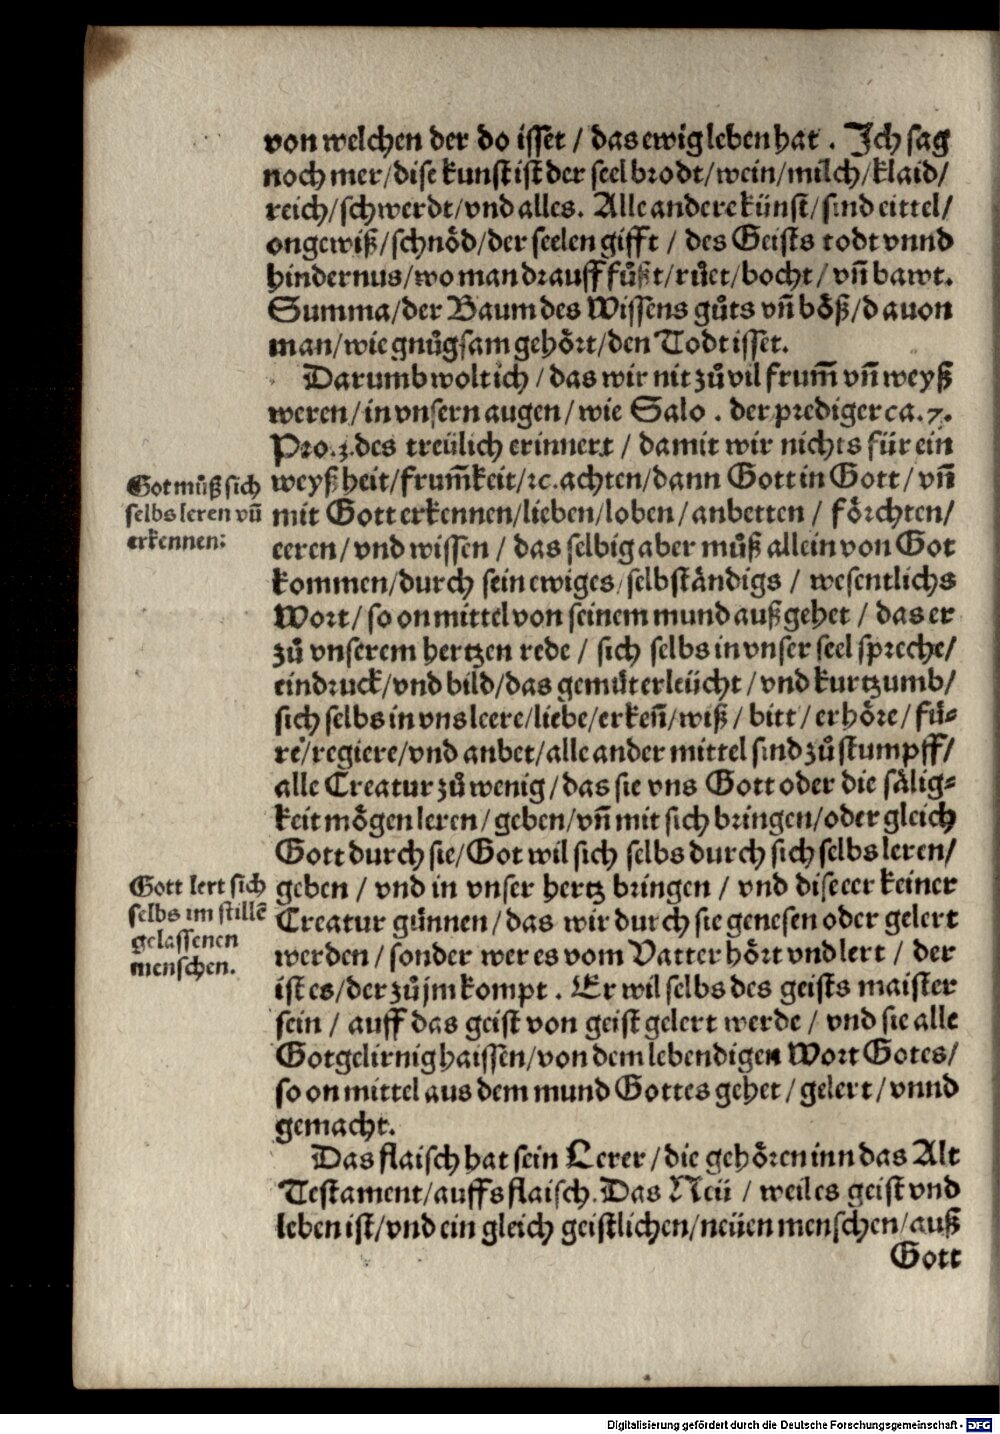 von welchen der do isset / das ewig leben hat . Ich sag
noch mer/dise kunst ist der seel brodt/wein/milch/klaid/
reich/schwerdt/vnd alles. Alle andere künst/sind eittel/
ongewiß/schnöd/der seelen gifft / des Geists todt vnnd
hindernus/wo man drauff fůßt/růet/bocht/vñ bawt.
Summa/der Baum des Wissens gůts vñ böß/dauon
man/wie gnůgsam gehört/den Todt isset.
Darumb wolt ich / das wir nit zů vil frum̃ vñ weyß
weren/in vnsern augen/wie Salo . der prediger ca.7.
Pro.3.des treülich erinnert / damit wir nichts für ein
weyßheit/frum̃keit/ꝛc.achten/dann Gott in Gott/vñ
mit Gott erkennen/lieben/loben/anbetten / förchten/
eeren/vnd wissen / das selbig aber můß allein von Got
kommen/durch sein ewiges/selbständigs / wesentlichs
Wort/so on mittel von seinem mund außgehet / das er
zů vnserem hertzen rede / sich selbs in vnser seel spreche/
eindruck/vnd bild/das gemüt erleücht/vnd kurtzumb/
sich selbs in vns leere/liebe/erkeñ/wiß / bitt/erhöre/fü⸗
re/regiere/vnd anbet/alle ander mittel sind zů stumpff/
alle Creatur zů wenig/das sie vns Gott oder die sälig⸗
keit mögen leren/geben/vñ mit sich bringen/oder gleich
Gott durch sie/Got wil sich selbs durch sich selbs leren/
geben / vnd in vnser hertz bringen / vnd dise eer keiner
Creatur günnen/das wir durch sie genesen oder gelert
werden/sonder wer es vom Vatter hört vnd lert / der
ist es/der zů jm kompt . Er wil selbs des geists maister
sein / auff das geist von geist gelert werde / vnd sie alle
Gotgelirnig haissen/von dem lebendigen Wort Gotes/
so on mittel aus dem mund Gottes gehet/gelert/vnnd
gemacht.
Das flaisch hat sein Lerer/die gehören inn das Alt
Testament/auffs flaisch.Das Neü / weil es geist vnd
leben ist/vnd ein gleich geistlichen/neüen menschen/auß
Gott
Got můß sich
selbs leren vñ
erkennen:
Gott lert sich
selbs im stillē
gelassenen
menschen.
Digitalisierung gefördert durch die Deutsche Forschungsgemeinschaft - DFG